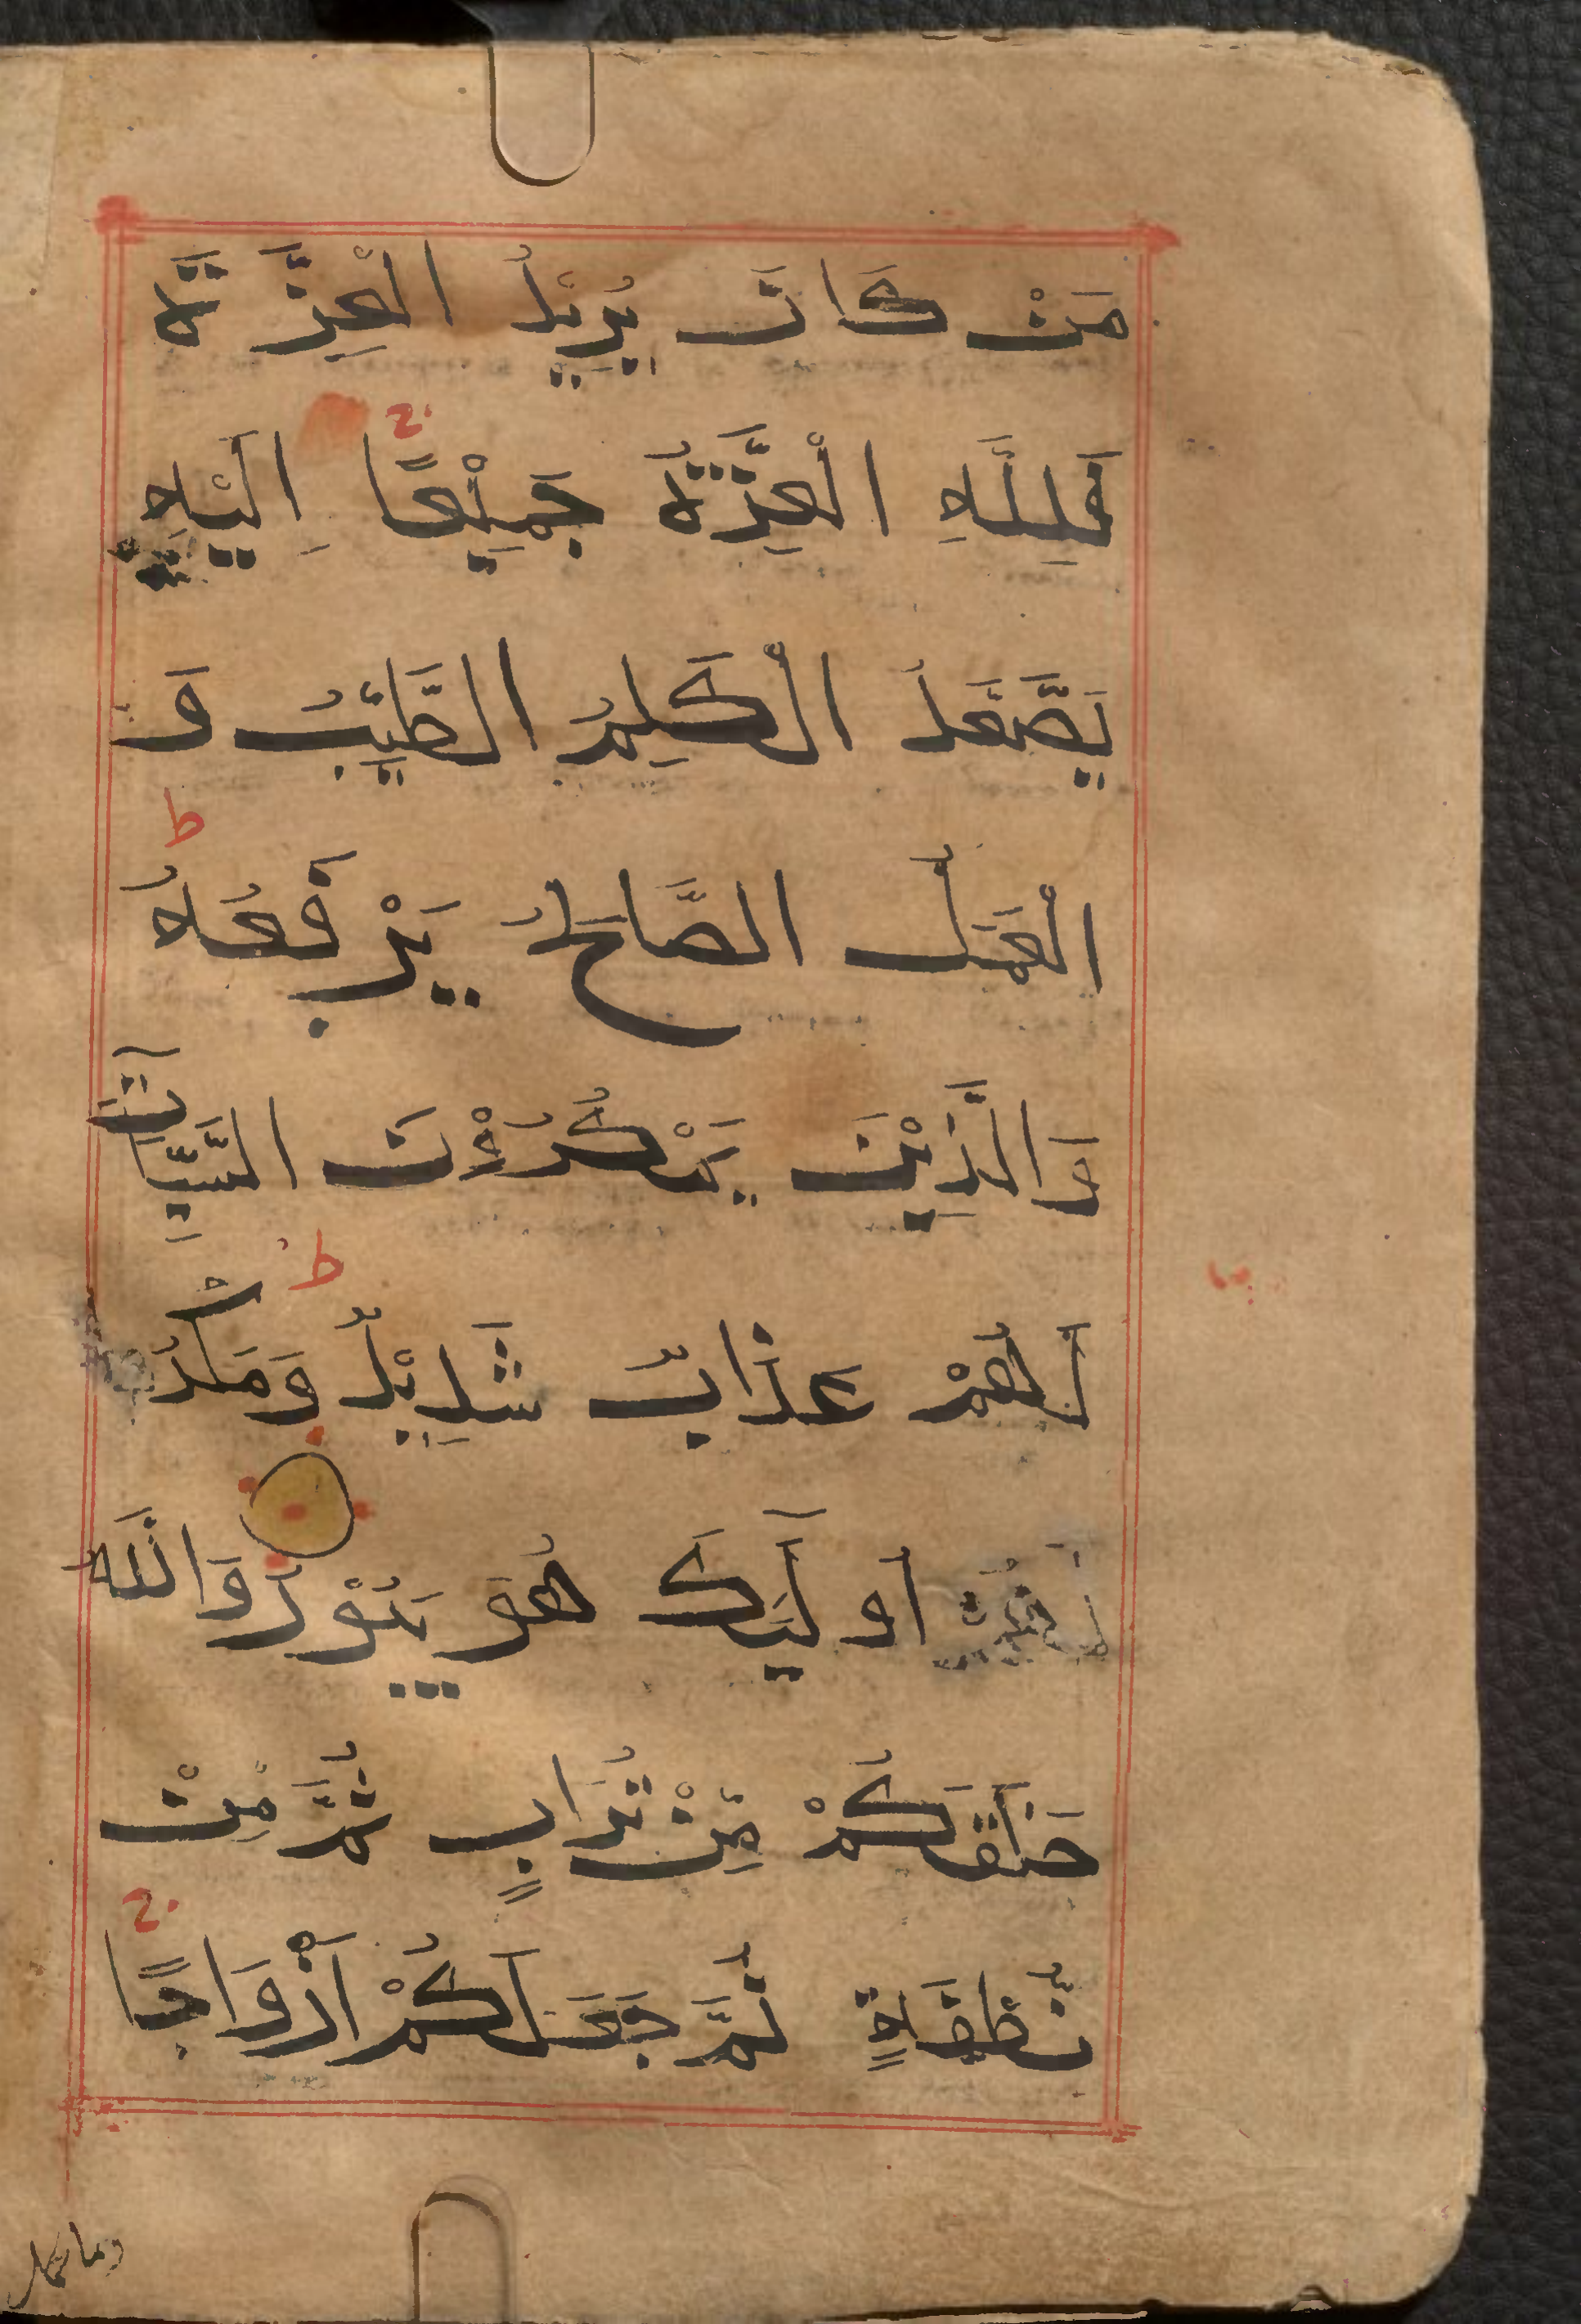 مَنْ كَانَ يُرِيْدُ الْعِزَّةَ
فَلِلَّهِ الْعِزَّةُ جَمِيْعًا ج اِلَيْهِ
يَصْعَدُ الْكَلِمُ الطَّيِّبُ وَ
الْعَمَلُ الصَّالِحُ يَرْفَعُهُ ط
وَالَّذِيْنَ يَمْكُرُوْنَ السَّيِّاٰتِ
لَهُمْ عَذَابٌ شَدِيْدٌ ط وَمَكْرُ
اُولَٓئِكَ هُوَ يَبُوْرُ وَاللَّهُ
خَلَقَكُمْ مِّنْ تُرَابٍ ثُمَّ مِنْ
نُّطْفَةٍ ثُمَّ جَعَلَكُمْ اَزْوَاجًا ج
وما تحمل